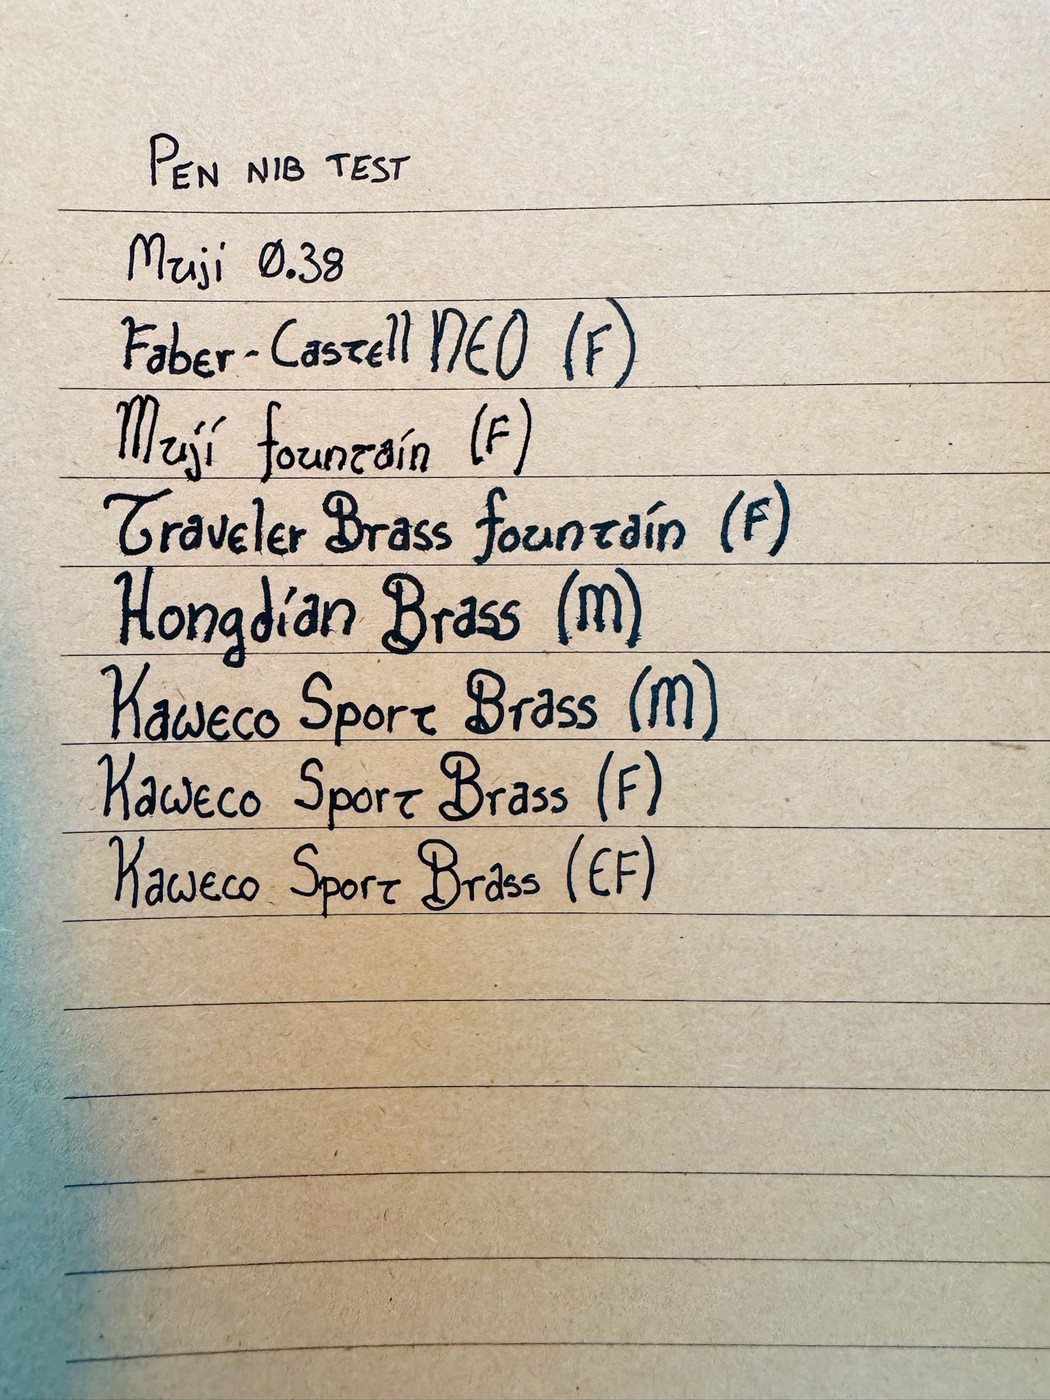 PEN NIB TEST
Muji 0.38
Faber-Castell NEO (F)
Muji fountain (F)
Traveler Brass fountain (F)
Hongdian Brass (M)
Kaweco Sport Brass (M)
Kaweco Sport Brass (F)
Kaweco Sport Brass (EF)